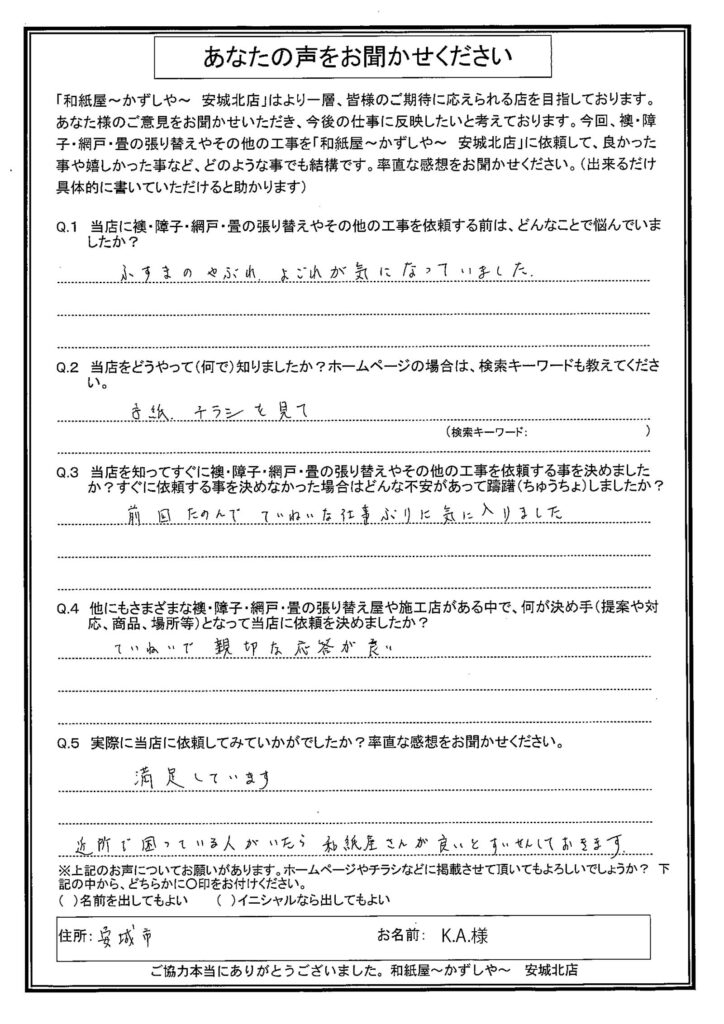 あなたの声をお聞かせください
「和紙屋～かずしや～　安城北店」はより一層、皆様のご期待に応えられる店を目指しております。
あなた様のご意見をお聞かせいただき、今後の仕事に反映したいと考えております。今回、襖・障
子・網戸・畳の張り替えやその他の工事を「和紙屋～かずしや～　安城北店」に依頼して、良かった
事や嬉しかった事など、どのような事でも結構です。率直な感想をお聞かせください。（出来るだけ
具体的に書いていただけると助かります）
Q.1　当店に襖・障子・網戸・畳の張り替えやその他の工事を依頼する前は、どんなことで悩んでいま
したか？
ふすまのやぶれ、よごれが気になっていました.
Q.2　当店をどうやって（何で）知りましたか？ホームページの場合は、検索キーワードも教えてくださ
い。
手紙、チラシを見て
（検索キーワード：　　　　　　　　　　）
Q.3　当店を知ってすぐに襖・障子・網戸・畳の張り替えやその他の工事を依頼する事を決めました
か？すぐに依頼する事を決めなかった場合はどんな不安があって躊躇（ちゅうちょ）しましたか？
前回たのんで ていねいな仕事ぶりに気に入りました
Q.4　他にもさまざまな襖・障子・網戸・畳の張り替え屋や施工店がある中で、何が決め手（提案や対
応、商品、場所等）となって当店に依頼を決めましたか？
ていねいで 親切な応答が良い
Q.5　実際に当店に依頼してみていかがでしたか？率直な感想をお聞かせください。
満足しています
近所で困っている人がいたら 和紙屋さんが良いとすいせんしておきます.
※上記のお声についてお願いがあります。ホームページやチラシなどに掲載させて頂いてもよろしいでしょうか？　下
記の中から、どちらかに〇印をお付けください。
（　）名前を出してもよい　　（　）イニシャルなら出してもよい
住所：安城市　お名前：　K.A.様
ご協力本当にありがとうございました。和紙屋～かずしや～　安城北店